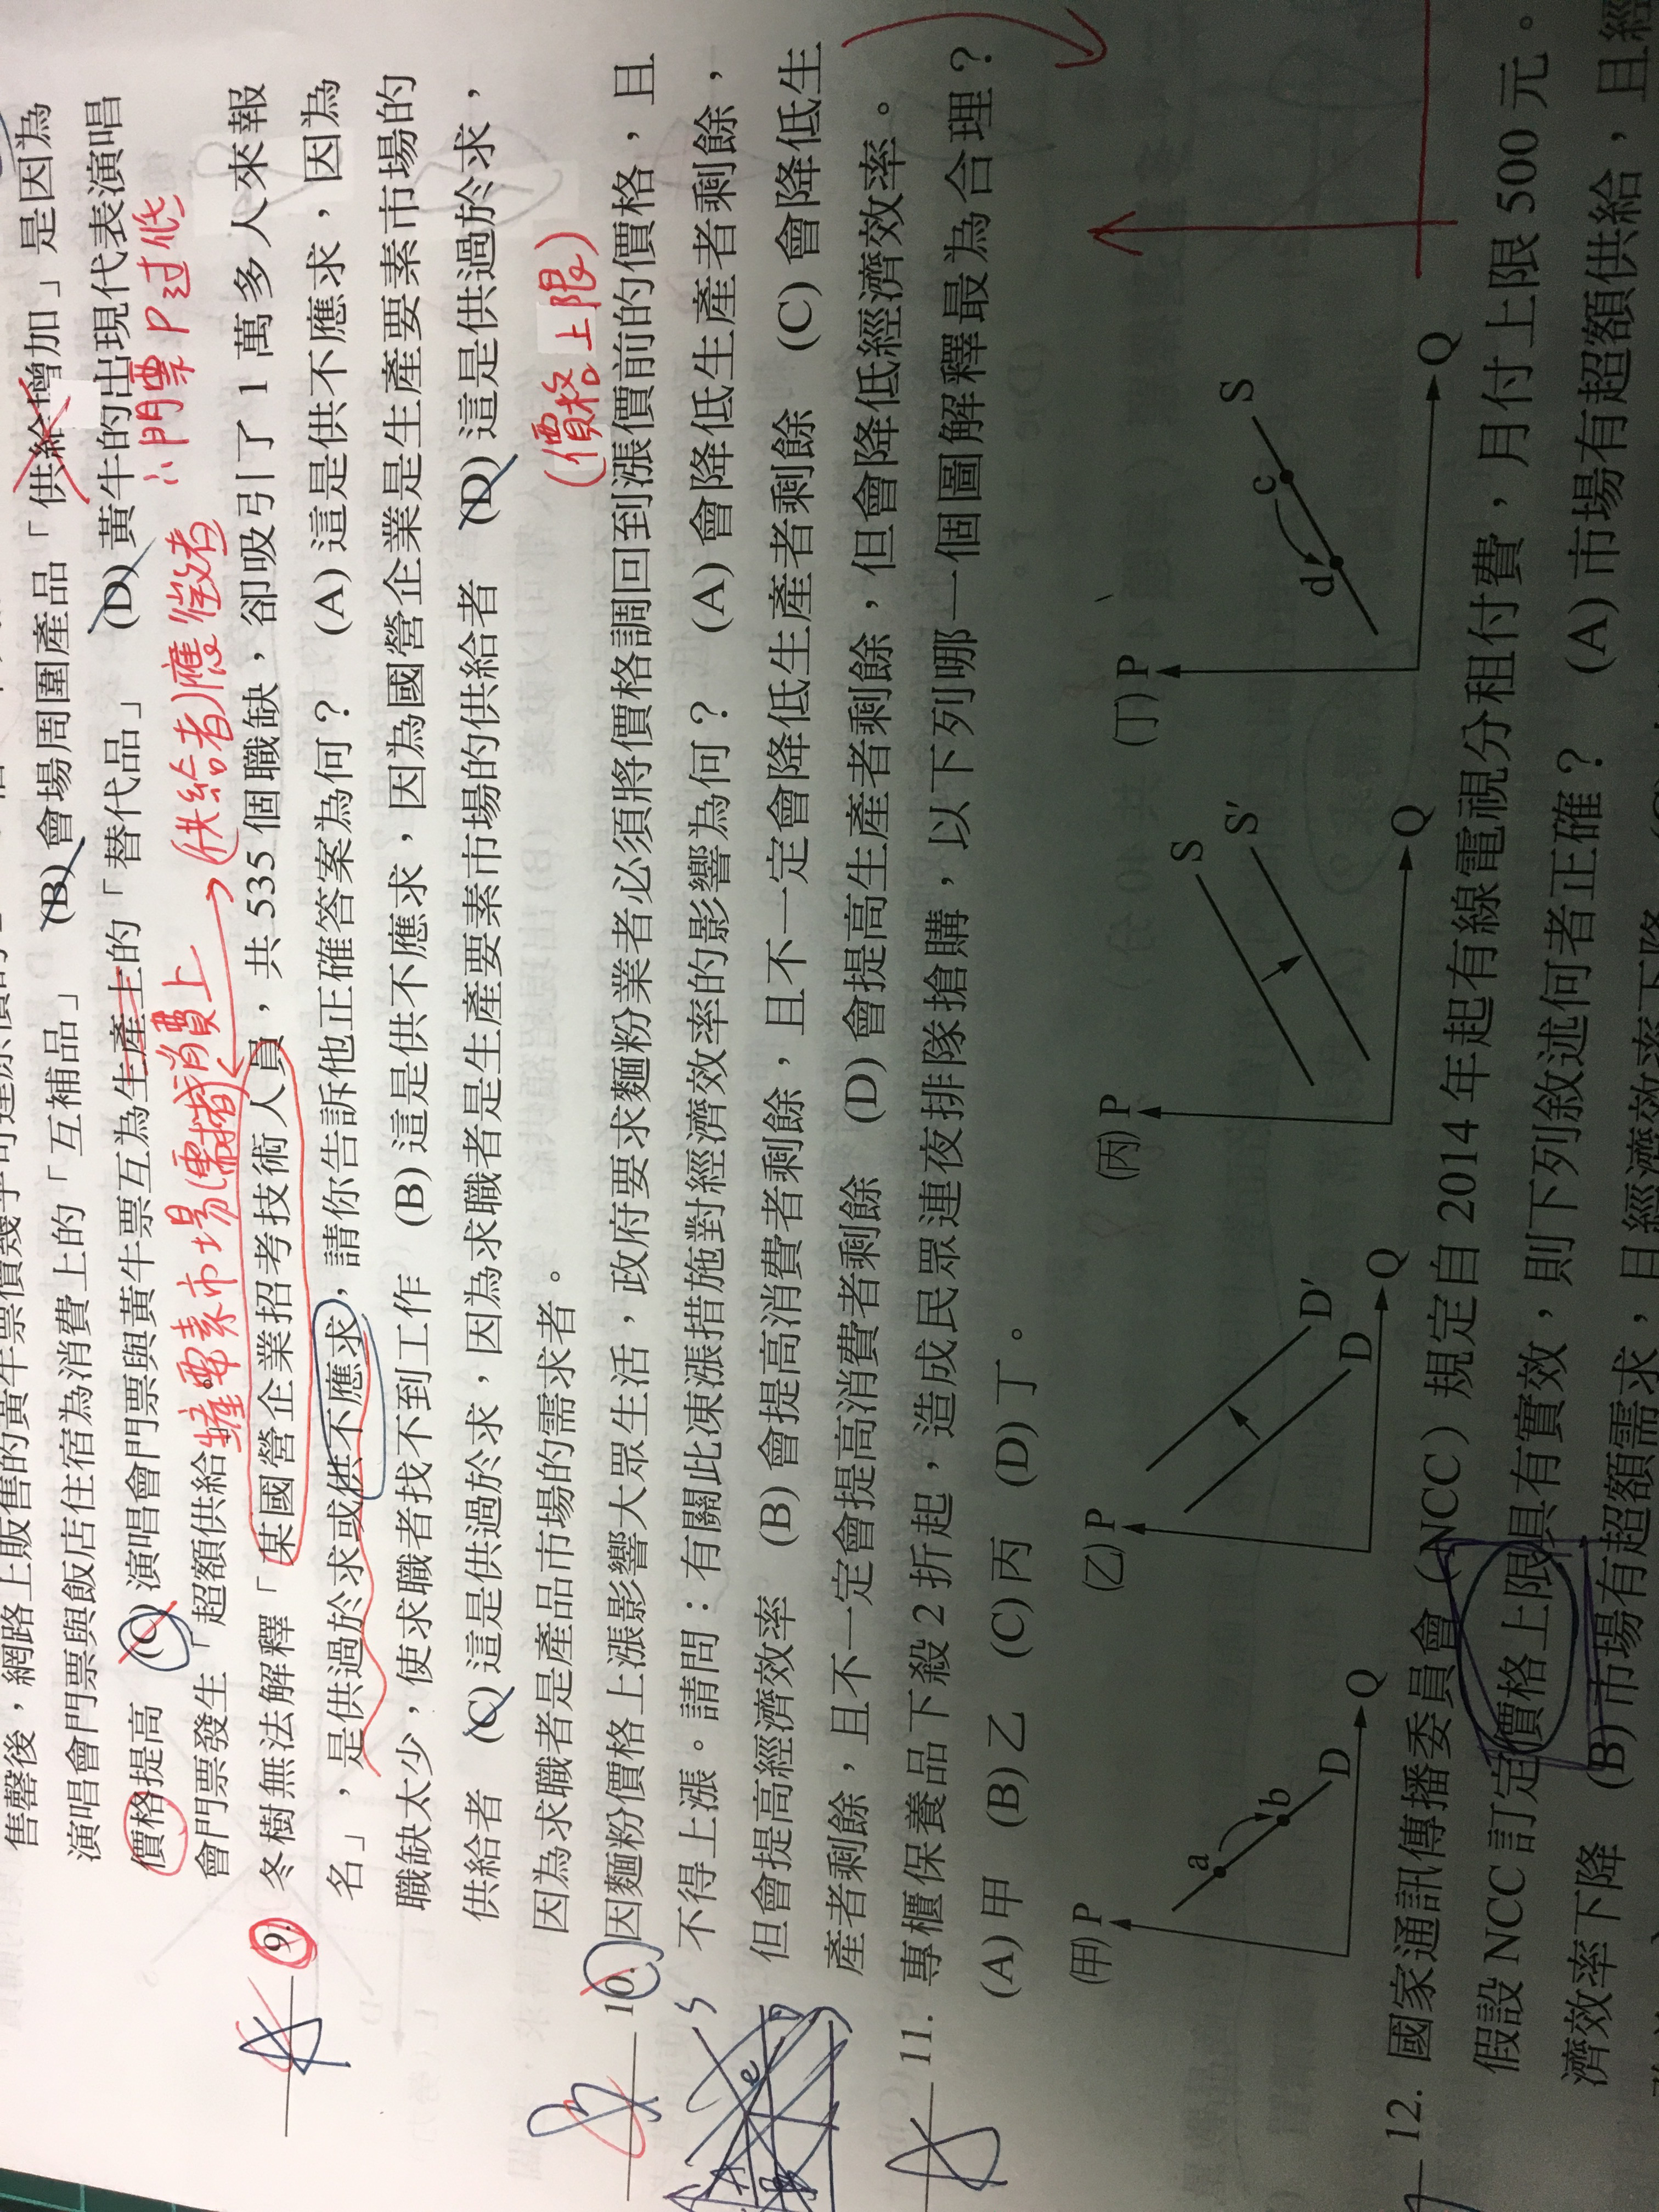 售罄後，網路上販售的黃牛票價幾乎可達原價的
演唱會門票與飯店住宿為消費上的「互補品」 (B) 會場周圍產品「供給增加」是因為
價格提高 (C) 演唱會門票與黃牛票互為生產上的「替代品」 (D) 黃牛的出現代表演唱
會門票發生「超額供給」。
∵門票P过低
生產要素市場(需求者)消費上→(供給者)應徵者
9. 冬樹無法解釋「某國營企業招考技術人員，共 535 個職缺，卻吸引了 1 萬多人來報
名」，是供過於求或供不應求，請你告訴他正確答案為何？ (A) 這是供不應求，因為
職缺太少，使求職者找不到工作 (B) 這是供不應求，因為國營企業是生產要素市場的
供給者 (C) 這是供過於求，因為求職者是生產要素市場的供給者 (D) 這是供過於求，
因為求職者是產品市場的需求者。
(價格上限)
10. 因麵粉價格上漲影響大眾生活，政府要求麵粉業者必須將價格調回到漲價前的價格，且
不得上漲。請問：有關此凍漲措施對經濟效率的影響為何？ (A) 會降低生產者剩餘，
但會提高經濟效率 (B) 會提高消費者剩餘，且不一定會降低生產者剩餘 (C) 會降低生
產者剩餘，且不一定會提高消費者剩餘 (D) 會提高生產者剩餘，但會降低經濟效率。
S
e
11. 專櫃保養品下殺 2 折起，造成民眾連夜排隊搶購，以下列哪一個圖解釋最為合理？
(A) 甲 (B) 乙 (C) 丙 (D) 丁。
(甲) P a b D Q
(乙) P D' D Q
(丙) P S S' Q
(丁) P d c S Q
12. 國家通訊傳播委員會（NCC）規定自 2014 年起有線電視分租付費，月付上限 500 元。
假設 NCC 訂定價格上限具有實效，則下列敘述何者正確？ (A) 市場有超額供給，且經
濟效率下降 (B) 市場有超額需求，且經濟效率下降